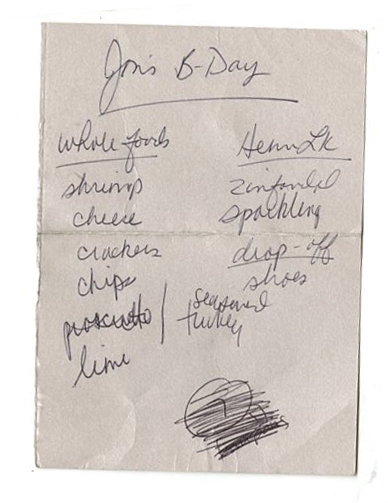 Jon's B-Day
whole foods
shrimp
cheese
crackers
chips
prosciutto / seasoned
turkey
lime
Henn Lk
zinfandel
sparkling
drop-off
shoes